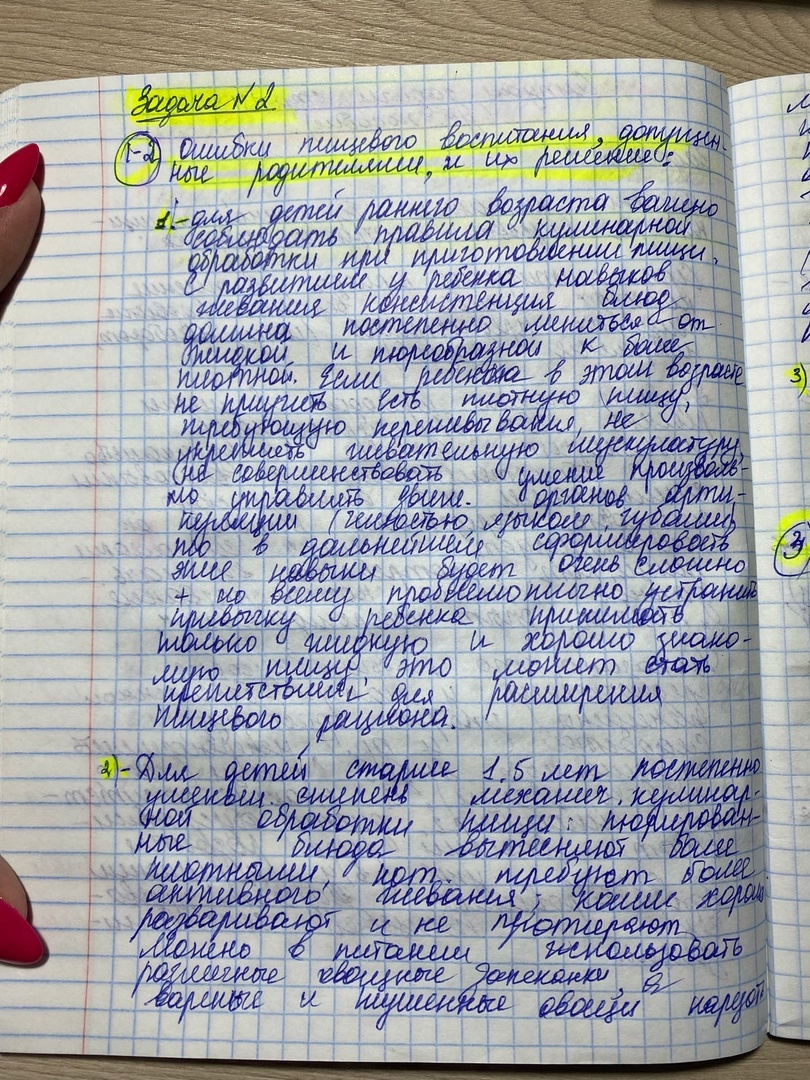 Задача №2
1-2 Ошибки пищевого воспитания, допущен-
ные родителями, и их решение:
1- для детей раннего возраста важно
соблюдать правила кулинарной
обработки при приготовлении пищи.
С развитием у ребенка навыков
жевания консистенция блюд
должна постепенно меняться от
жидкой и пюреобразной к более
плотной. Если ребенка в этом возрасте
не приучать есть плотную пищу,
требующую пережевывания, не
укреплять жевательную мускулатуру,
не совершенствовать умение произволь-
но управлять движ. органов арти-
куляции (челюстью, языком, губами),
то в дальнейшем сформировать
эти навыки будет очень сложно
+ ко всему проблемотично устранить
привычку ребенка принимать
только жидкую и хорошо знако-
мую пищу, это может стать
препятствием для расширения
пищевого рациона.
2)- Для детей старше 1,5 лет постепенно
уменьш. степень механич. кулинар-
ной обработки пищи: пюрирован-
ные блюда вытесняют более
плотными, кот. требуют более
активного жевания; каши хорошо
разваривают и не протирают
Можно в питании использовать
различные овощные запеканки, а
вареные и тушенные овощи нарезать
3)
3